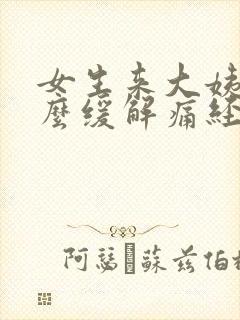 女生来大姨
麽缓解痛经
阿瑟·蘇茲伯